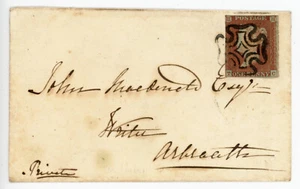 POSTAGE
John Macdonald Esqre
Writer
Arbroath
Private